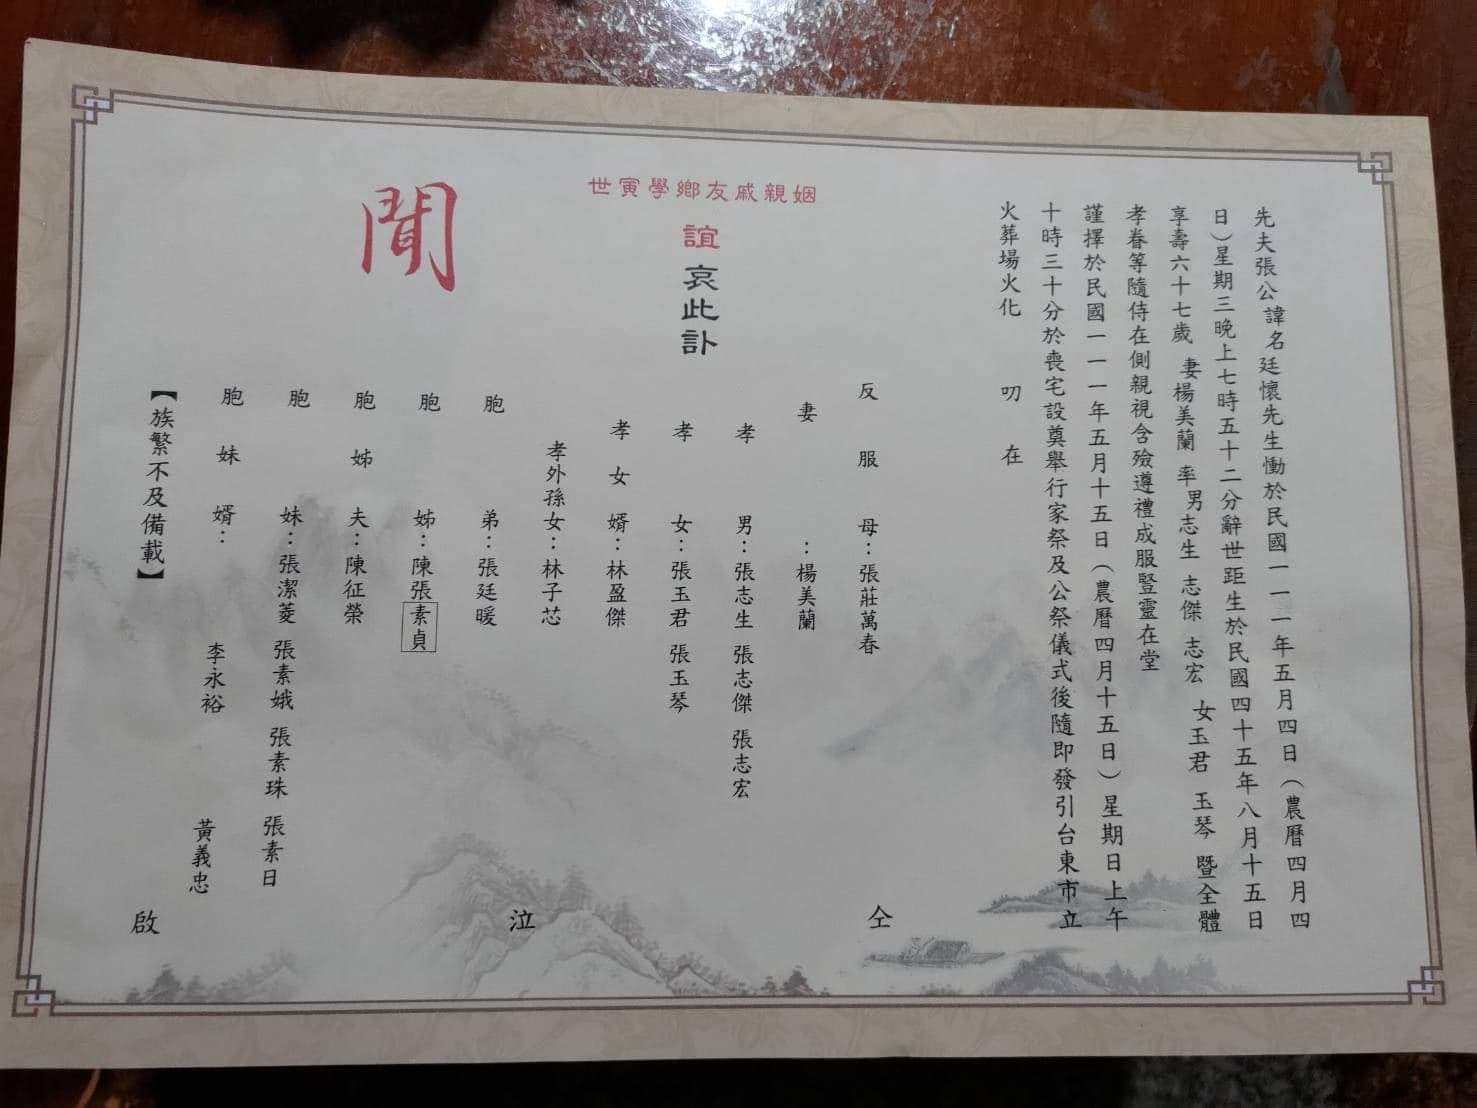 先夫張公諱名廷懷先生慟於民國一一一年五月四日（農曆四月四
日）星期三晚上七時五十二分辭世距生於民國四十五年八月十五日
享壽六十七歲 妻楊美蘭 率男志生 志傑 志宏 女玉君 玉琴 暨全體
孝眷等隨侍在側親視含殮遵禮成服豎靈在堂
謹擇於民國一一一年五月十五日（農曆四月十五日）星期日上午
十時三十分於喪宅設奠舉行家祭及公祭儀式後隨即發引台東市立
火葬場火化 叨在
世寅學鄉友戚親姻
誼 哀此訃
聞
反服母：張莊萬春 仝
妻：楊美蘭
孝男：張志生 張志傑 張志宏
孝女：張玉君 張玉琴
孝女婿：林盈傑
孝外孫女：林子芯
胞弟：張廷暖 泣
胞姊：陳張素貞
胞姊夫：陳征榮
胞妹：張潔菱 張素娥 張素珠 張素日
胞妹婿： 李永裕 黃義忠
【族繁不及備載】 啟